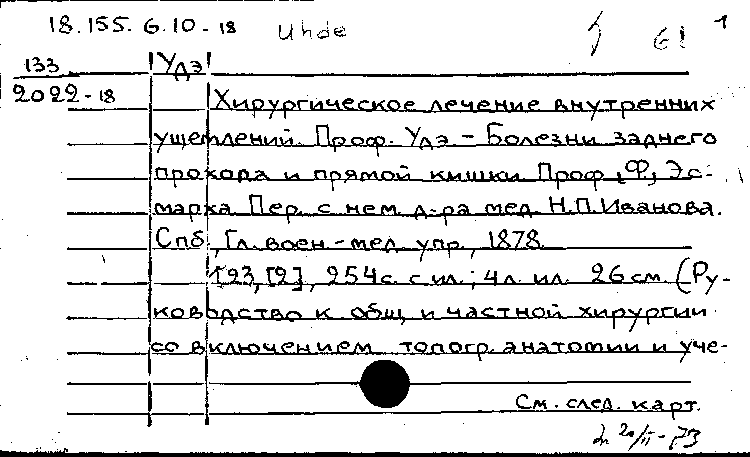 18.155.6.10-18 Uhde 61 1
133 Удэ
2022-18 Хирургическое лечение внутренних
ущемлений. Проф. Удэ - Болезни заднего
прохода и прямой кишки Проф. Ф. Эс-
марка Пер. с нем. д-ра мед. Н.П.Иванова.
Спб, Гл. воен.-мед. упр., 1878
123, [2], 254с. с ил.; 4л. ил. 26 см. (Ру-
ководство к общ. и частной хирургии
со включением топогр. анатомии и уче-
См. след. карт.